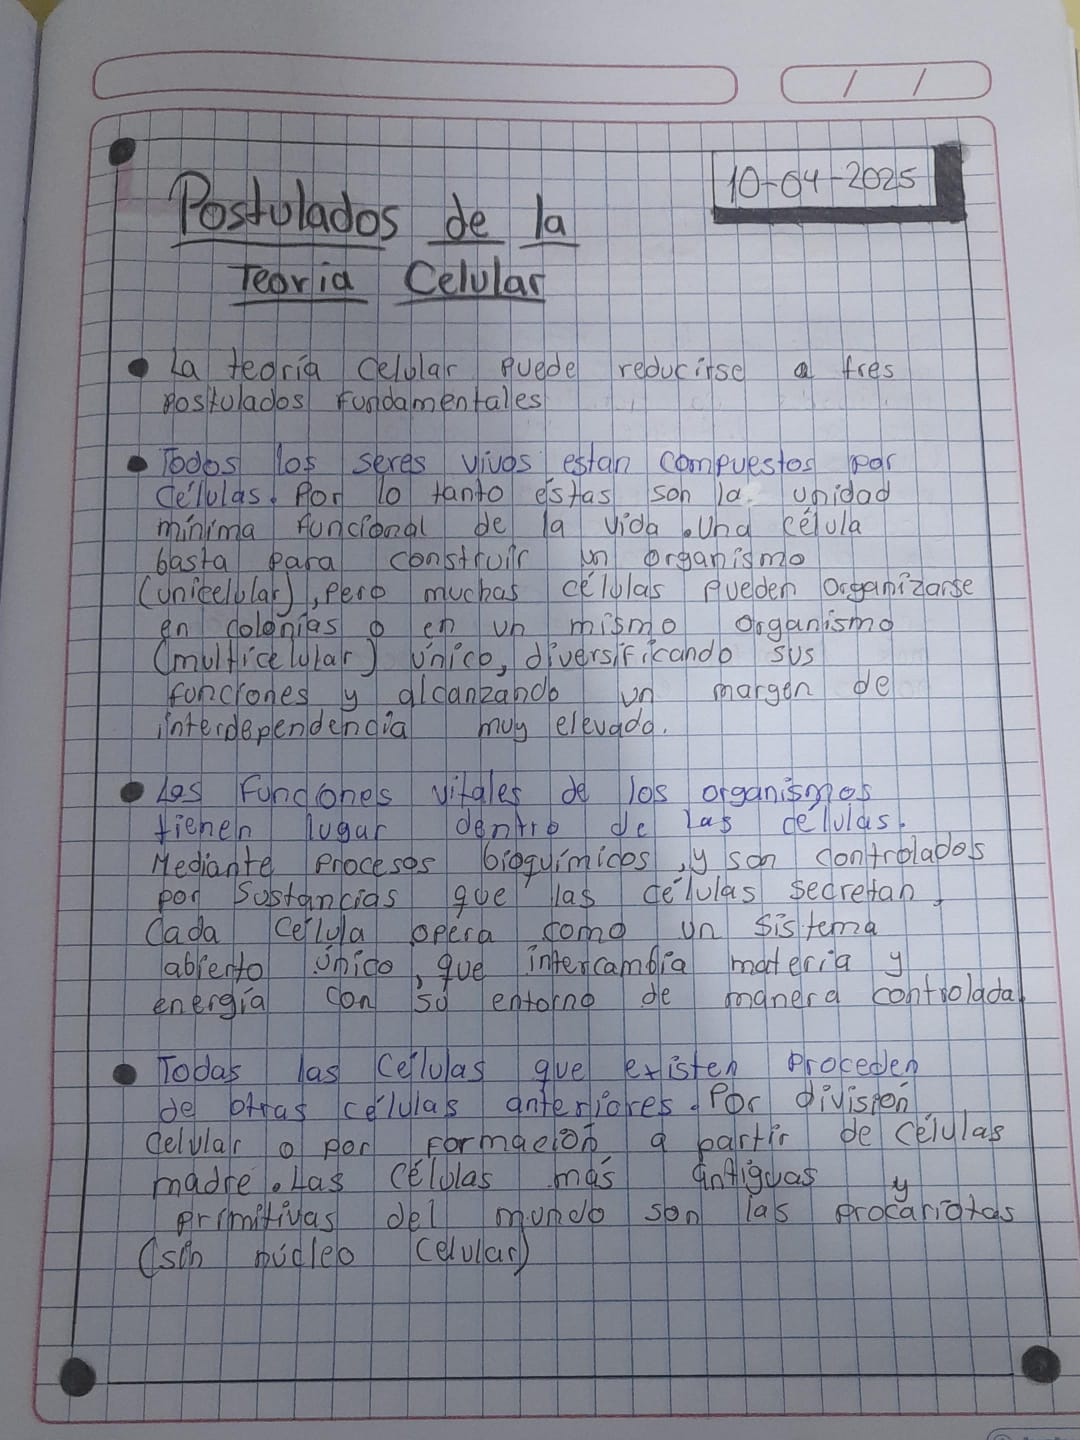 / /
10-04-2025
Postulados de la
Teoria Celular
• La teoría Celular puede reducirse a tres
postulados fundamentales
• Todos los seres vivos estan compuestos por
células. Por lo tanto éstas son la unidad
mínima funcional de la vida. Una célula
basta para construir un organismo
(unicelular), pero muchas células pueden organizarse
en colonias o en un mismo organismo
(multicelular) único, diversificando sus
funciones y alcanzando un margen de
interdependencia muy elevado.
• Las Funciones vitales de los organismos
tienen lugar dentro de las células.
Mediante procesos bioquímicos, y son controlados
por sustancias que las células secretan.
Cada Célula opera como un sistema
abierto único, que intercambia materia y
energía con su entorno de manera controlada
• Todas las Células que existen proceden
de otras células anteriores. Por división
Celular o por formación a partir de células
madre. Las células más antiguas y
primitivas del mundo son las procariotas
(sin núcleo celular)